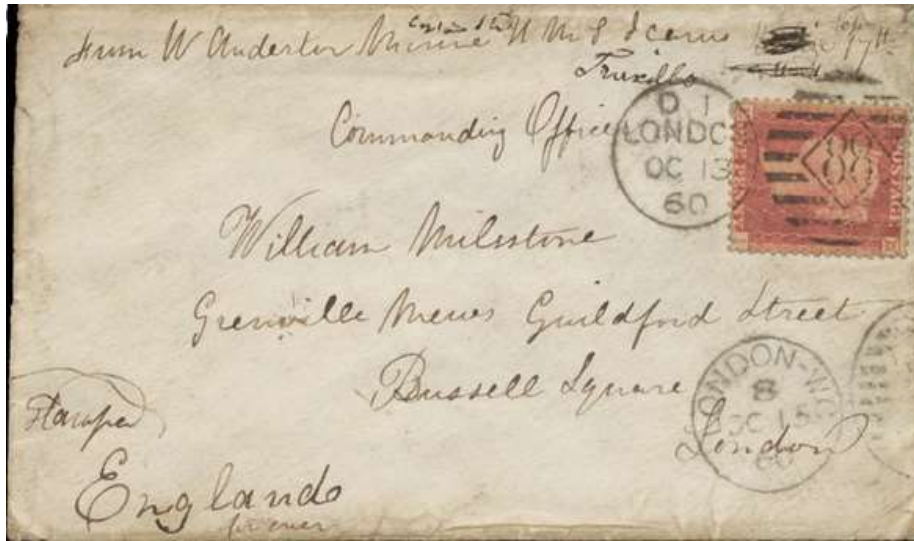 From W Anderton Marine H M S Icarus 17th
Truxillo
Commanding Officer
D 1
LONDON
OC 13
60
88
William Milestone
Grenville Mewes Guildford Street
Russell Square
London
LONDON-WC
8
OC 15
60
Stamped
England